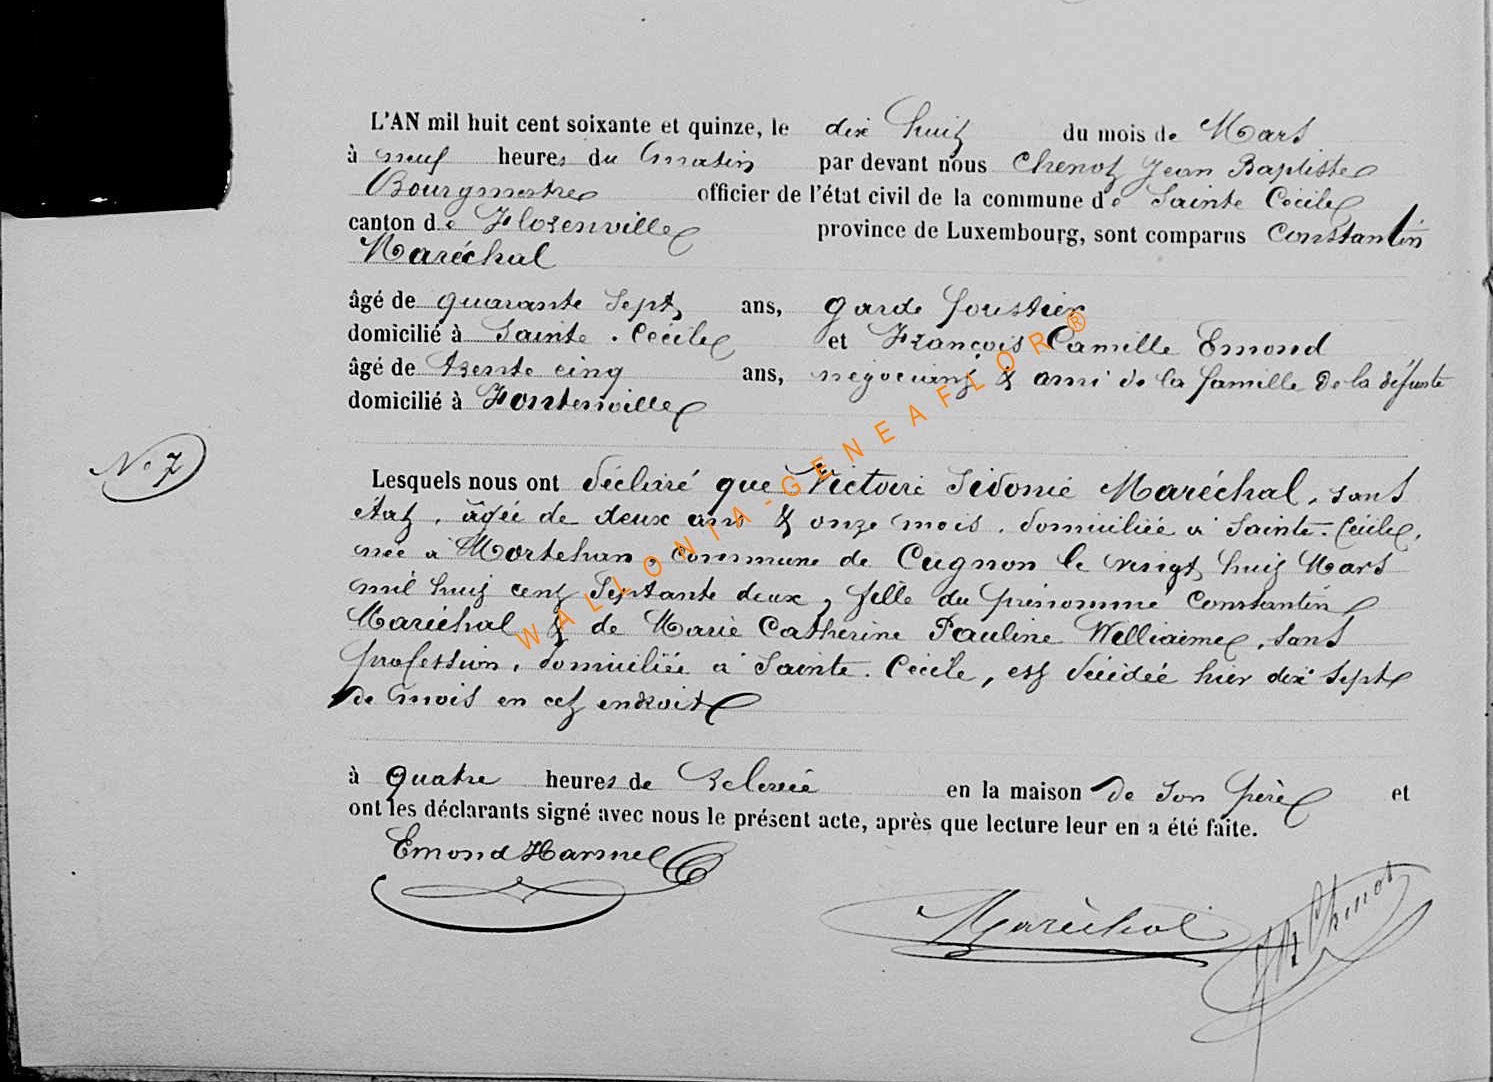 L'AN mil huit cent soixante et quinze, le dix huit du mois de Mars
à neuf heures du matin par devant nous Chenot Jean Baptiste
Bourgmestre officier de l'état civil de la commune de Sainte Cécile
canton de Florenville province de Luxembourg, sont comparus Constantin
Maréchal
âgé de quarante sept ans, garde forestier
domicilié à Sainte-Cécile et François Camille Emond
âgé de trente cinq ans, négociant & ami de la famille de la défunte
domicilié à Fontenoille
N° 7
Lesquels nous ont déclaré que Victoire Sidonie Maréchal, sans
état, âgée de deux ans & onze mois, domiciliée à Sainte-Cécile,
née à Mortehan, commune de Cugnon le vingt huit Mars
mil huit cent septante deux, fille du prénommé Constantin
Maréchal & de Marie Catherine Pauline Welliaime, sans
profession, domiciliée à Sainte-Cécile, est décédée hier dix sept
de mois en cet endroit
à quatre heures de relevée en la maison de son père et
ont les déclarants signé avec nous le présent acte, après que lecture leur en a été faite.
Emond Harmel
Maréchal
JB Chenot
WALLONIA-GENEAFLOR®